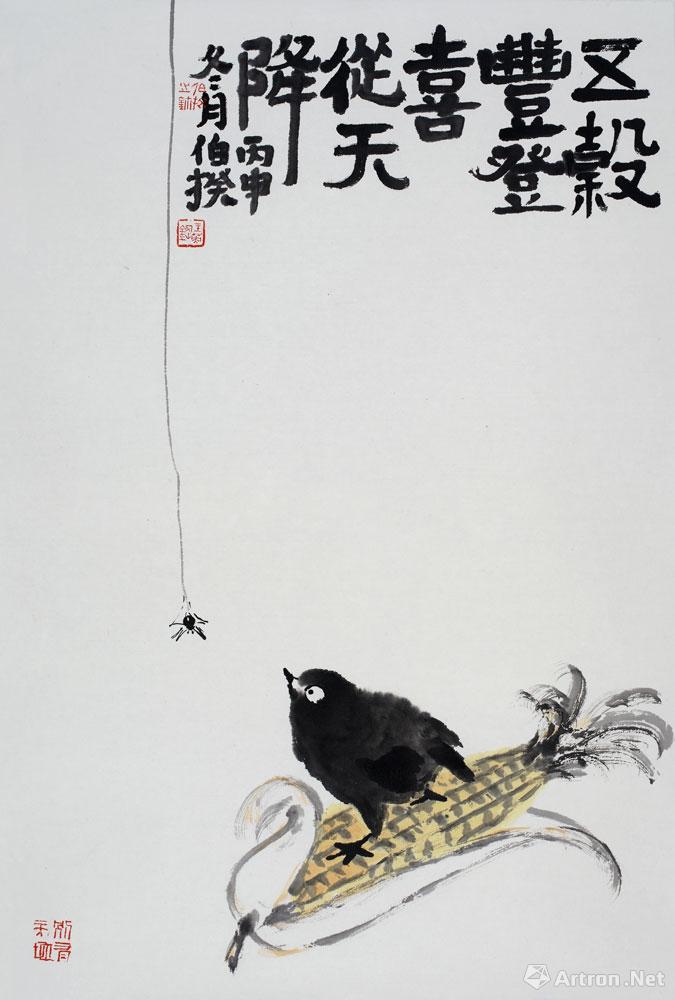 五穀
豐登
喜
從天
降
丙申
冬月伯揆
Artron.Net